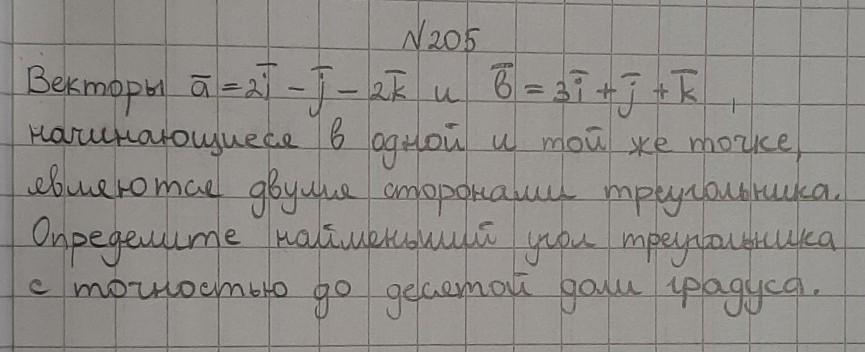 N205
Векторы a̅ = 2i̅ - j̅ - 2k̅ и b̅ = 3i̅ + j̅ + k̅ ,
начинающиеся в одной и той же точке,
являются двумя сторонами треугольника.
Определите найменьший угол треугольника
с точностью до десятой доли градуса.